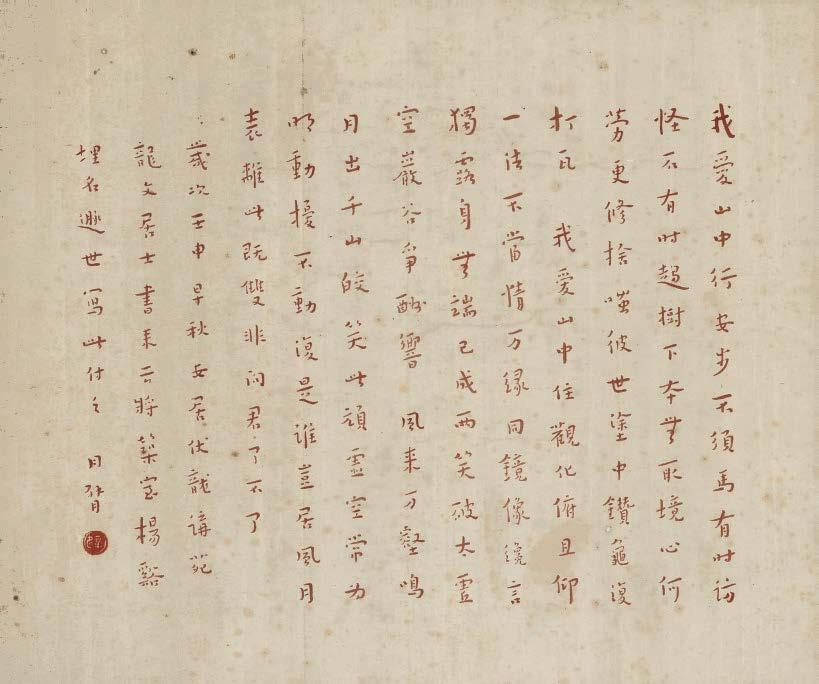 我愛山中行安步不須馬有時訪
怪石有时趨樹下本無取境心何
勞更修捨嗤彼世塗中鑽龜復
打瓦 我愛山中住觀化俯且仰
一法不當情万緣同鏡像纔言
獨露身無端已成兩笑破太虛
空巖谷爭酬響 風来万壑鳴
月出千山皎笑此頑虛空常为
明動擾不動復是谁豈居風月
表離此既雙非问君了不了
歲次壬申早秋安居伏龍講苑
龍文居士書来云將築室楊谿
埋名遯世寫此付之 月臂